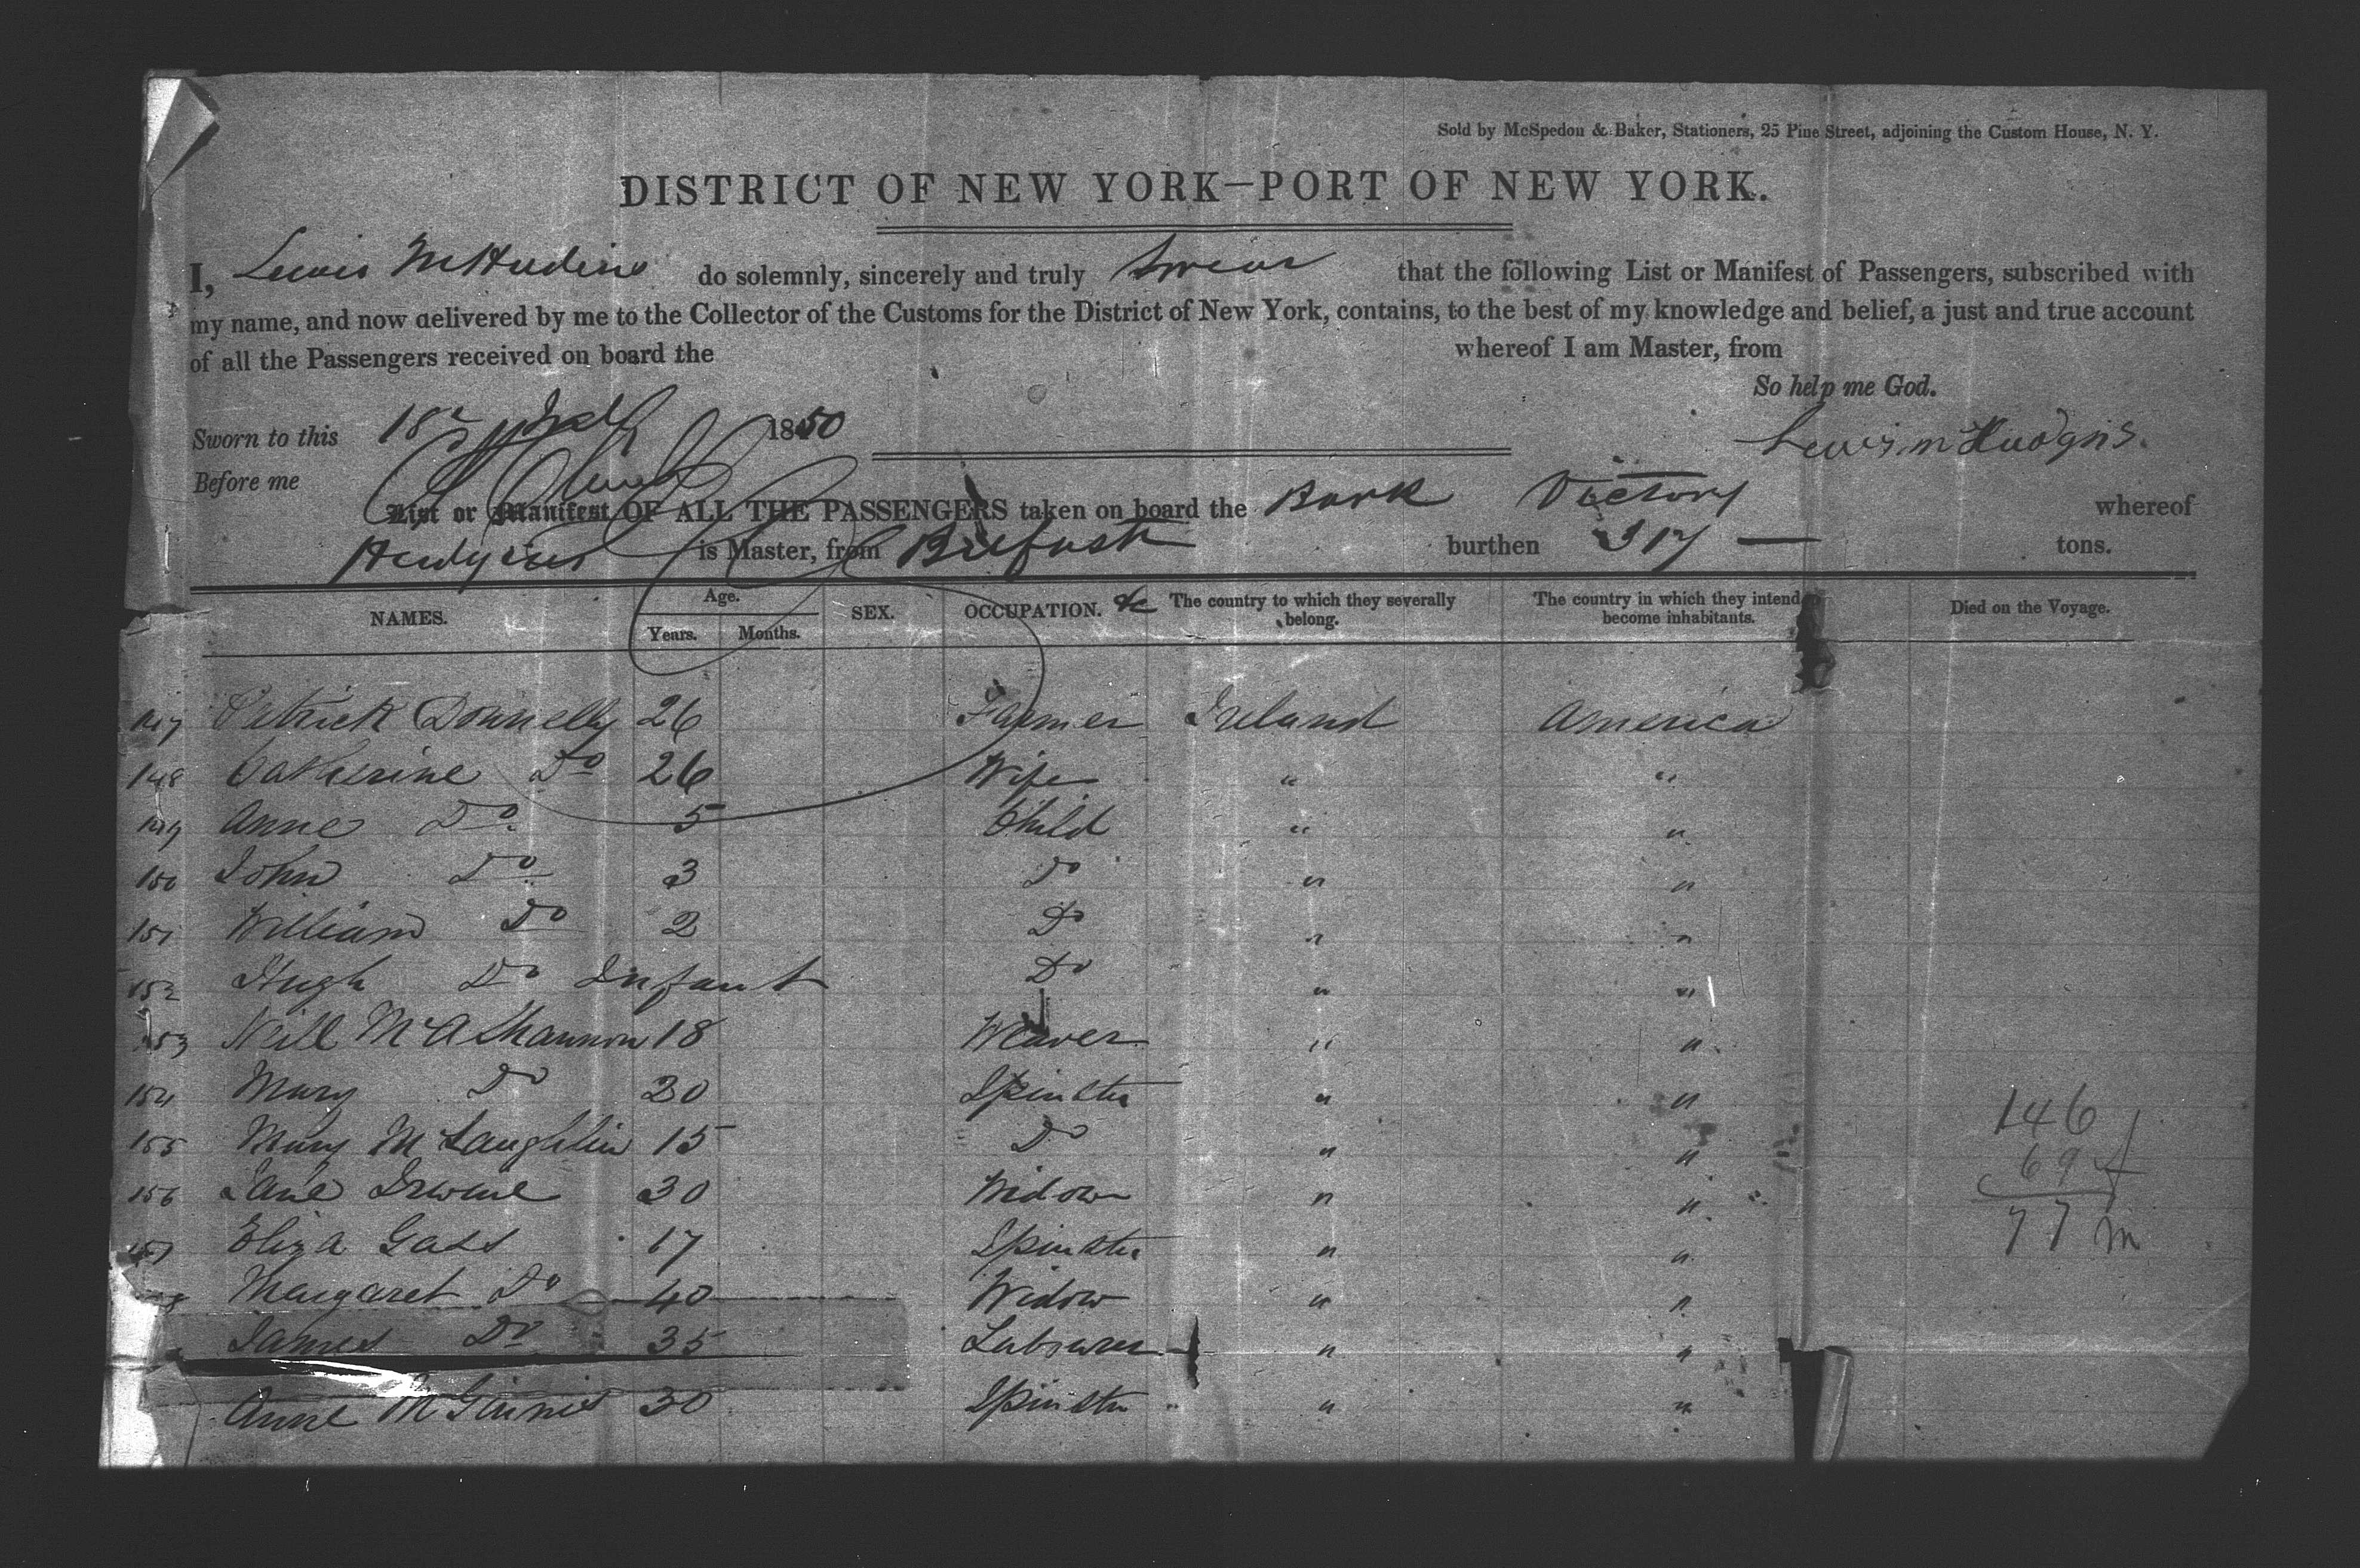 Sold by McSpedon & Baker, Stationers, 25 Pine Street, adjoining the Custom House, N. Y.
DISTRICT OF NEW YORK—PORT OF NEW YORK.
I, Lewis M Hudgins do solemnly, sincerely and truly Swear that the following List or Manifest of Passengers, subscribed with
my name, and now delivered by me to the Collector of the Customs for the District of New York, contains, to the best of my knowledge and belief, a just and true account
of all the Passengers received on board the whereof I am Master, from
So help me God.
Sworn to this 18 1850
Lewis m Hudgins.
Before me
List or Manifest OF ALL THE PASSENGERS taken on board the Bark Victory whereof
Hudgins is Master, from Belfast burthen 317 — tons.
NAMES. Age. Years. Months. SEX. OCCUPATION. &c The country to which they severally belong. The country in which they intend to become inhabitants. Died on the Voyage.
147 Patrick Donnelly 26 Farmer Ireland America
148 Catherine Do 26 Wife " "
149 Anne Do. 5 Child " "
150 John Do 3 Do " "
151 William Do 2 Do " "
152 Hugh Do Infant Do " "
153 Neill 18 Weaver " "
154 Mary Do 20 Spinster " "
155 Mary McLaughlin 15 Do " "
156 Jane Irvine 30 Widow " "
157 Eliza Gass 17 Spinster " "
Margaret Do 40 Widow " "
James Do 35 Labourer " "
Anne McGinnis 30 Spinster " "
146
69 f
77 m